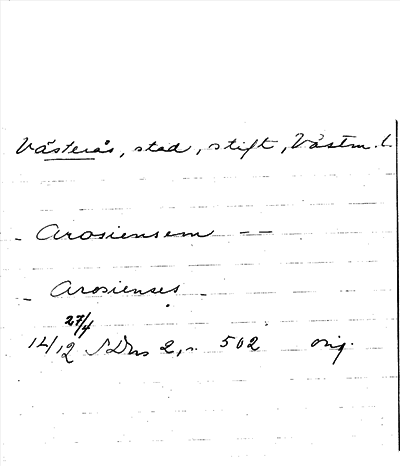 Västerås, stad, stift, Västm. l.
- Arosiensem --
- Arosienses -
27/4
1412 SDns 2, n. 502 orig.